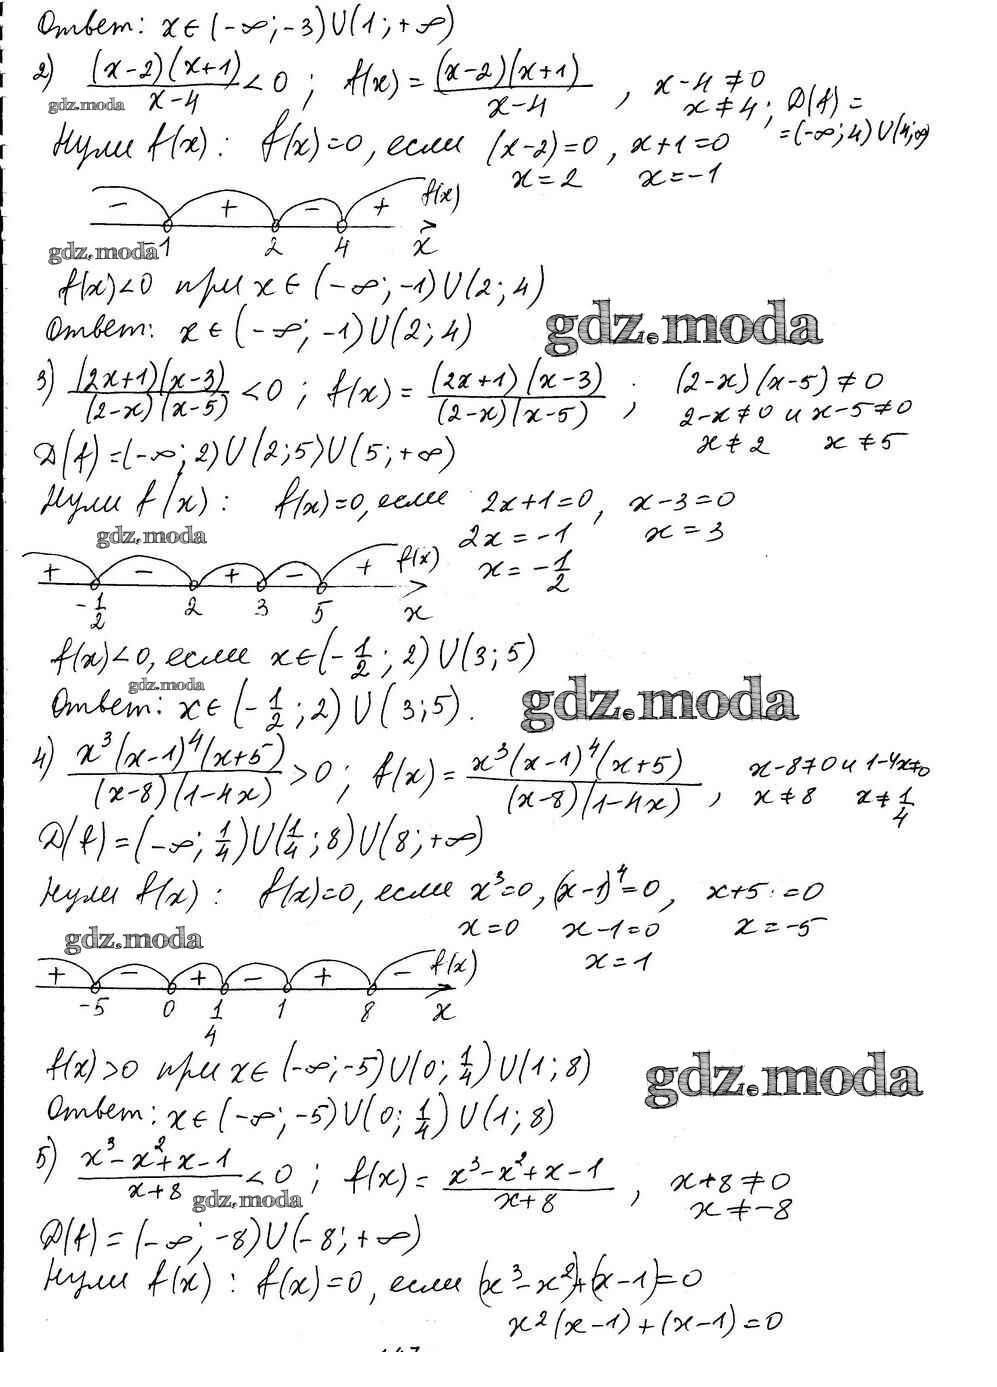 Ответ: x∈(-∞;-3)∪(1;+∞)
2) (x-2)(x+1)/(x-4) < 0; f(x) = (x-2)(x+1)/(x-4), x-4≠0
gdz.moda x≠4; D(f) =
=(-∞;4)∪(4;∞)
Нули f(x): f(x)=0, если (x-2)=0, x+1=0
x=2 x=-1
- + - + f(x)
gdz.moda -1 2 4 x
f(x)<0 при x∈(-∞;-1)∪(2;4)
Ответ: x∈(-∞;-1)∪(2;4)
gdz.moda
3) (2x+1)(x-3)/(2-x)(x-5) < 0; f(x) = (2x+1)(x-3)/(2-x)(x-5), (2-x)(x-5)≠0
2-x≠0 и x-5≠0
x≠2 x≠5
D(f)=(-∞;2)∪(2;5)∪(5;+∞)
Нули f(x): f(x)=0, если 2x+1=0, x-3=0
gdz.moda 2x=-1 x=3
x=-1/2
+ - + - + f(x)
-1/2 2 3 5 x
f(x)<0, если x∈(-1/2;2)∪(3;5)
gdz.moda
Ответ: x∈(-1/2;2)∪(3;5).
gdz.moda
4) x³(x-1)⁴(x+5)/(x-8)(1-4x) > 0; f(x) = x³(x-1)⁴(x+5)/(x-8)(1-4x), x-8≠0 и 1-4x≠0
x≠8 x≠1/4
D(f)=(-∞;1/4)∪(1/4;8)∪(8;+∞)
Нули f(x): f(x)=0, если x³=0, (x-1)⁴=0, x+5=0
x=0 x-1=0 x=-5
gdz.moda x=1
+ - + - + - f(x)
-5 0 1/4 1 8 x
f(x)>0 при x∈(-∞;-5)∪(0;1/4)∪(1;8)
gdz.moda
Ответ: x∈(-∞;-5)∪(0;1/4)∪(1;8)
5) x³-x²+x-1/x+8 < 0; f(x) = x³-x²+x-1/x+8, x+8≠0
gdz.moda x≠-8
D(f)=(-∞;-8)∪(-8;+∞)
Нули f(x): f(x)=0, если (x³-x²)+(x-1)=0
x²(x-1)+(x-1)=0